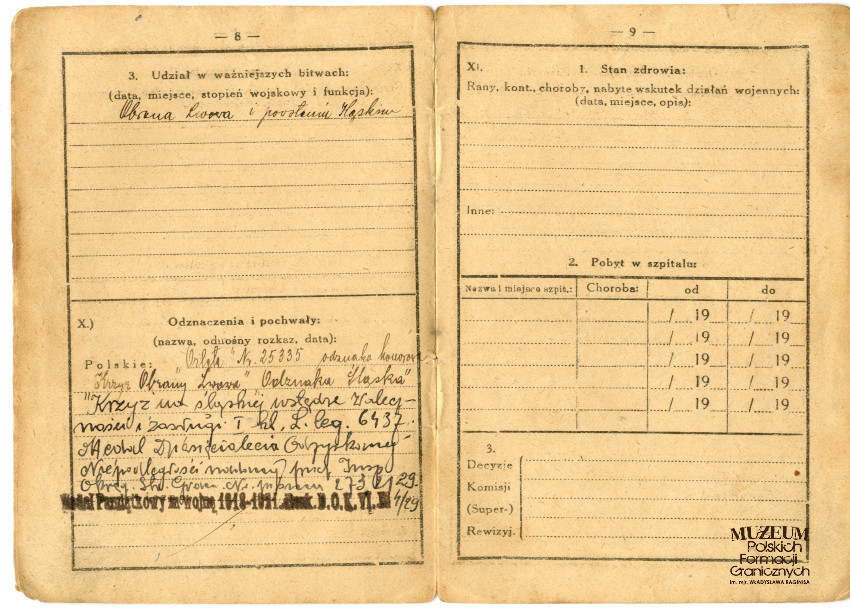 — 8 —
3. Udział w ważniejszych bitwach:
(data, miejsce, stopień wojskowy i funkcja):
Obrona Lwowa i powstanie Śląskie
X.) Odznaczenia i pochwały:
(nazwa, odnośny rozkaz, data):
Polskie: "Orlęta" Nr. 25335 odznaka honorowa
"Krzyż Obrony Lwowa" Odznaka Śląska"
"Krzyż na śląskiej wstędze Walecz-
ności i zasługi I kl. L. leg. 6437.
Medal Dziesięciolecia Odzyskanej
Niepodległości nadany przez Insp
Okręg. Str. Gran. Nr. 273 29
Medal Pamiątkowy za wojnę 1918-1921. D.O.K. VI. 4/29
— 9 —
XI. 1. Stan zdrowia:
Rany, kont., choroby, nabyte wskutek działań wojennych:
(data, miejsce, opis):
Inne:
2. Pobyt w szpitalu:
Nazwa i miejsce szpit.: Choroba: od do
/ 19 / 19
/ 19 / 19
/ 19 / 19
/ 19 / 19
/ 19 / 19
3.
Decyzje
Komisji
(Super-)
Rewizyj.
MUZEUM
Polskich
Formacji
Granicznych
im. mjr. WŁADYSŁAWA RAGINISA